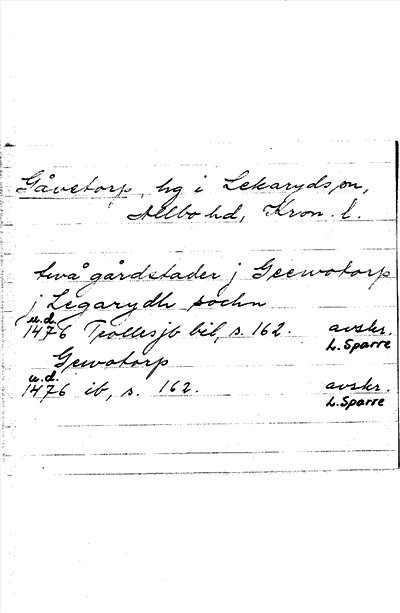 Gåvetorp, hg i Lekaryds sn,
Allbo hd, Kron. l.
twå gårdstader j Geewotorp
j Legarydh sochn
u.d.
1476 Trollesjb bil, s. 162. avskr.
L. Sparre
Gewotorp
u.d.
1476 ib, s. 162. avskr.
L. Sparre